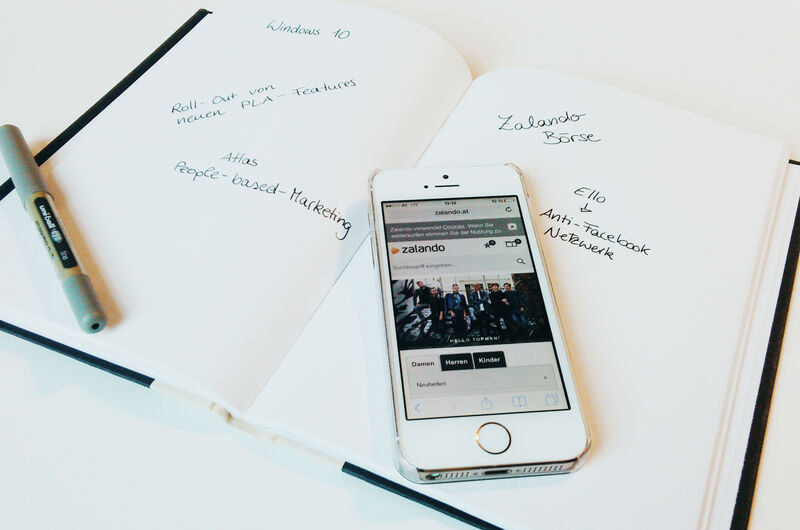 Windows 10
Roll-Out von
neuen PLA-Features
Atlas
People-based-Marketing
uni-ball eye
Zalando
Börse
Ello
Anti-Facebook
Netzwerk
A1 LTE
13:14
zalando.at
Zalando verwendet Cookies. Wenn Sie
weitersurfen stimmen Sie der Nutzung zu.
zalando
Suchbegriff eingeben...
HELLO TOPMAN!
Damen Herren Kinder
Neuheiten